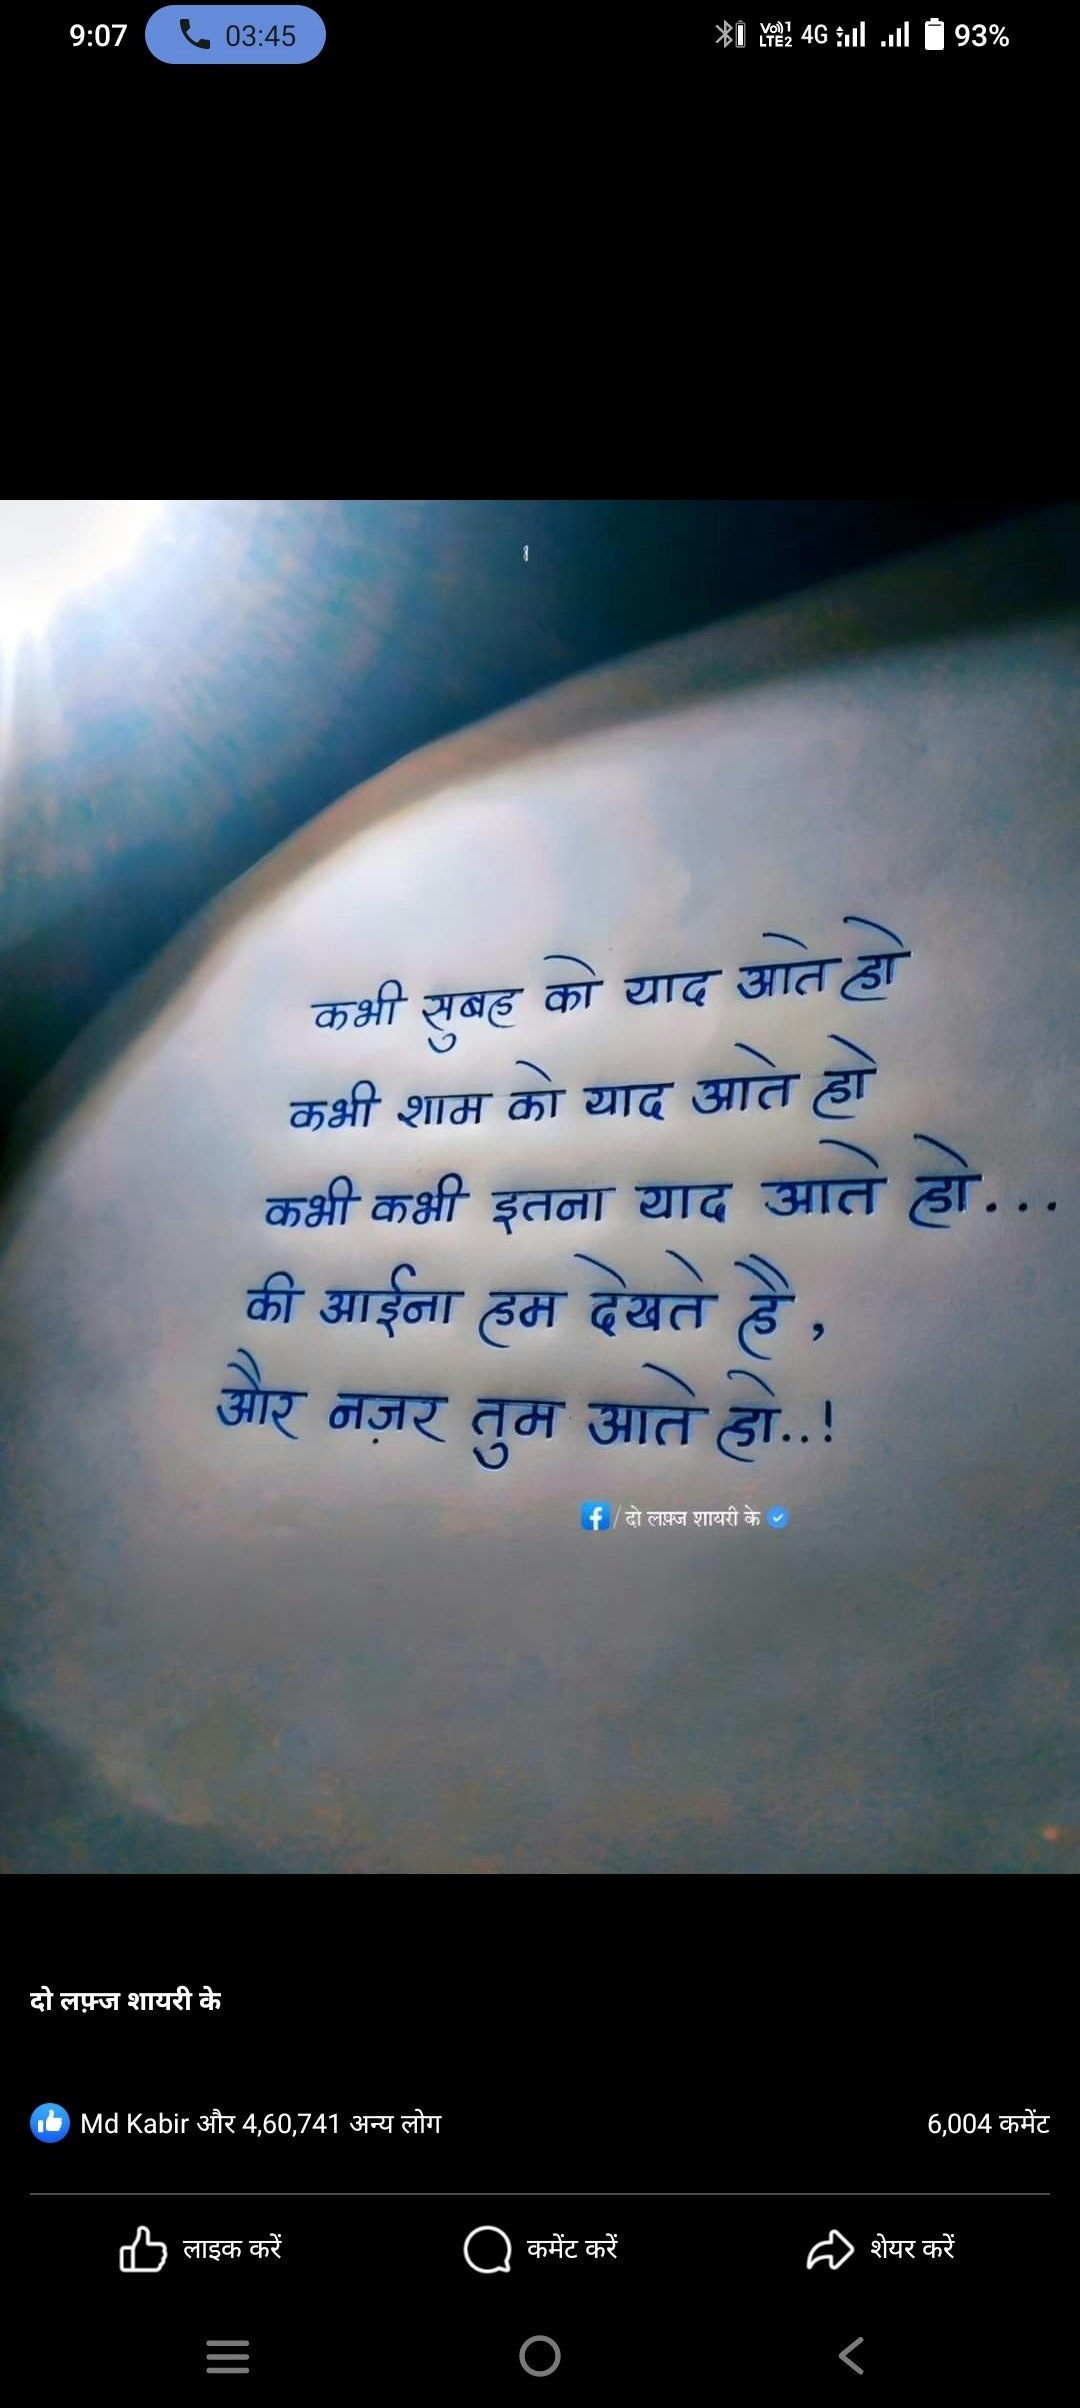 9:07 03:45 Vo)) 1 LTE2 4G 93%
कभी सुबह को याद आते हो
कभी शाम को याद आते हो
कभी कभी इतना याद आते हो...
की आईना हम देखते है ,
और नज़र तुम आते हो..!
f / दो लफ़्ज शायरी के
दो लफ़्ज शायरी के
Md Kabir और 4,60,741 अन्य लोग 6,004 कमेंट
लाइक करें कमेंट करें शेयर करें